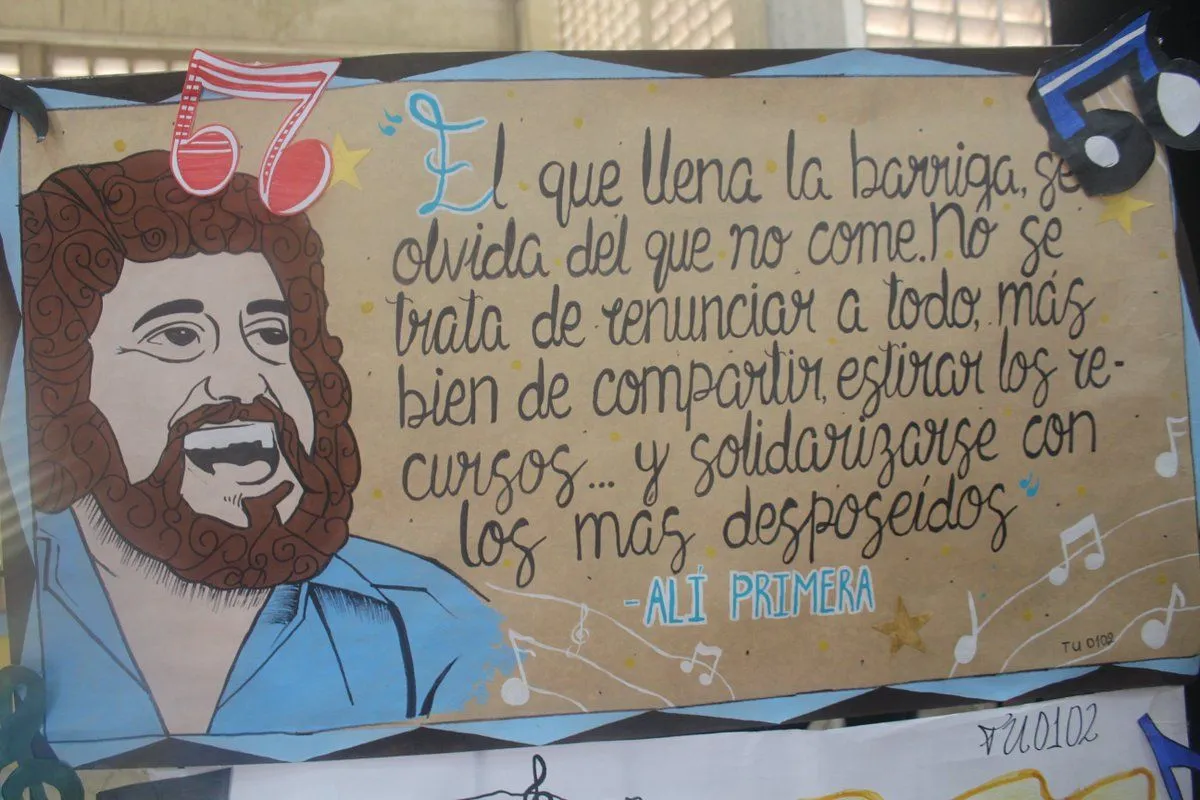 “El que llena la barriga, se
olvida del que no come. No se
trata de renunciar a todo, más
bien de compartir, estirar los re-
cursos... y solidarizarse con
los más desposeídos”
-ALÍ PRIMERA
TU 0102
TU0102